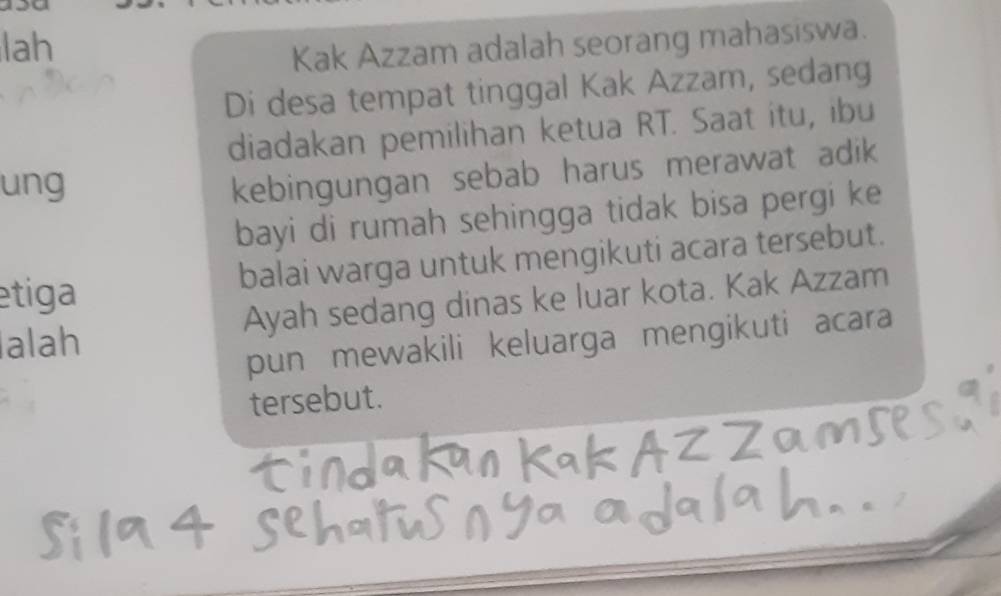 lah
ung
etiga
alah
Kak Azzam adalah seorang mahasiswa.
Di desa tempat tinggal Kak Azzam, sedang
diadakan pemilihan ketua RT. Saat itu, ibu
kebingungan sebab harus merawat adik
bayi di rumah sehingga tidak bisa pergi ke
balai warga untuk mengikuti acara tersebut.
Ayah sedang dinas ke luar kota. Kak Azzam
pun mewakili keluarga mengikuti acara
tersebut.
tindakan Kak AZZam sesuai
Sila 4 seharusnya adalah...